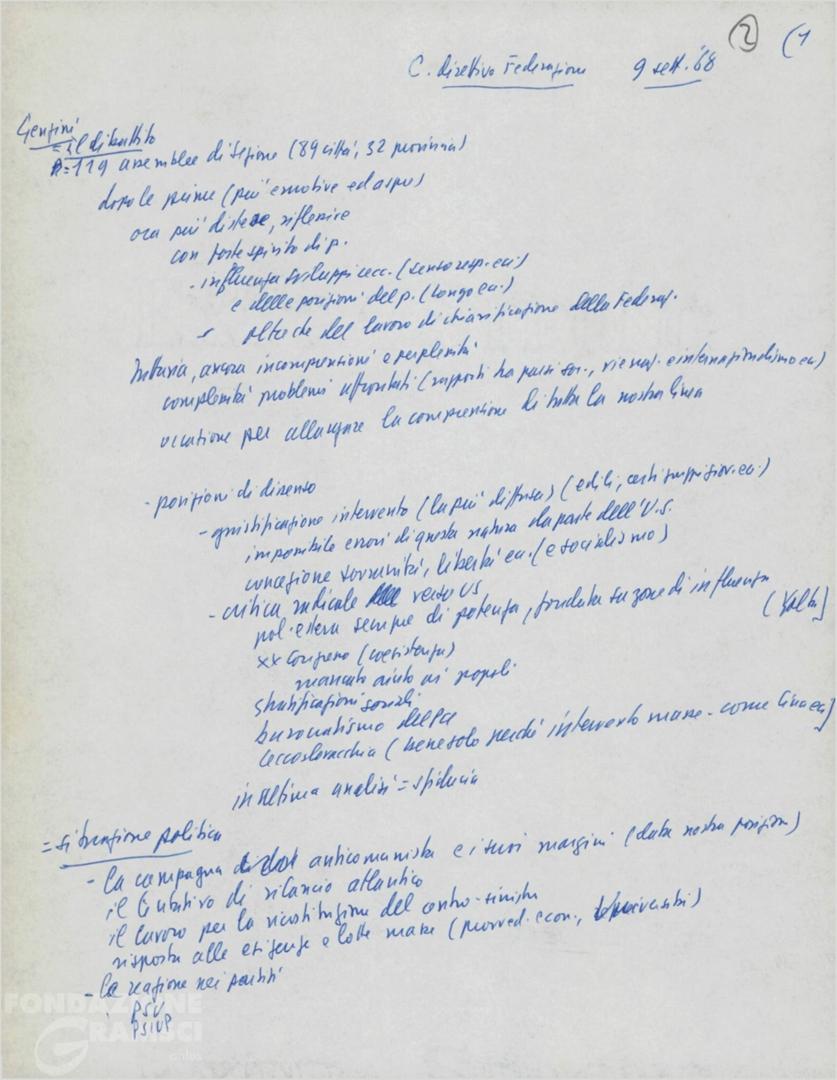 2 (1
C. direttivo Federazione 9 sett. '68
= il dibattito
= 119 assemblee di sezione (89 città, 32 provincia)
dopo le prime (più emotive ed aspre)
ora più distese, riflessive
con forte spirito di p.
- influenza sviluppi cec. (senso resp. ecc.)
e delle posizioni del p. (Longo ecc.)
- oltre che del lavoro di chiarificazione della Federaz.
Tuttavia, ancora incomprensioni e perplessità
complessità problemi affrontati (rapporti tra paesi soc., vie naz. e internazionalismo ecc)
occasione per allargare la comprensione di tutta la nostra linea
- posizioni di dissenso
- giustificazione intervento (la più diffusa) (edili, ecc.)
impossibile errori di questa natura da parte dell'U.S.
concezione sovranità, libertà ecc. (e socialismo)
- critica radicale verso US
pol. estera sempre di potenza, fondata su zone di influenza (Yalta)
XX Congresso (coesistenza)
mancato aiuto ai popoli
stratificazioni sociali
burocratismo della
Cecoslovacchia (bene solo perché intervento masse - come Cina ecc)
in ultima analisi = sfiducia
= situazione politica
- la campagna anticomunista e i suoi margini (data nostra posizione)
il tentativo di rilancio atlantico
il lavoro per la ricostituzione del centro-sinistra
risposta alle esigenze e lotte masse (provved. econ., università)
- la reazione nei partiti
PSU
PSIUP
FONDAZIONE
GRAMSCI
onlus